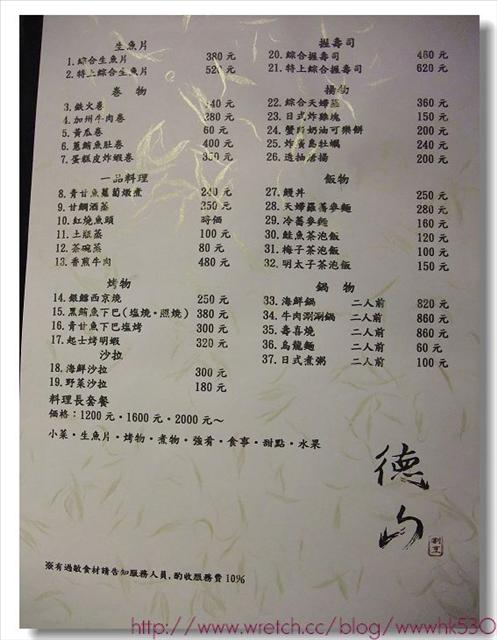 生魚片
1. 綜合生魚片 380 元
2. 特上綜合生魚片 520 元
巻 物
3. 鐵火巻 元
4. 加州牛肉巻 280 元
5. 黃瓜巻 60 元
6. 蔥鮪魚肚巻 400 元
7. 蛋糕皮炸蝦巻 350 元
一品料理
8. 青甘魚蘿蔔燉煮 240 元
9. 甘鯛酒蒸 250 元
10. 紅燒魚頭 時価
11. 土瓶蒸 100 元
12. 茶碗蒸 80 元
13. 香煎牛肉 480 元
烤物
14. 銀鱈西京燒 250 元
15. 黑鮪魚下巴(塩燒・照燒) 380 元
16. 青甘魚下巴塩烤 300 元
17. 起士烤明蝦 320 元
沙拉
18. 海鮮沙拉 300 元
19. 野菜沙拉 180 元
料理長套餐
価格：1200 元・1600 元・2000 元～
小菜・生魚片・烤物・煮物・強肴・食事・甜點・水果
握壽司
20. 綜合握壽司 460 元
21. 特上綜合握壽司 620 元
揚物
22. 綜合天婦羅 360 元
23. 日式炸雞塊 150 元
24. 蟹肉奶油可樂餅 200 元
25. 炸廣島牡蠣 240 元
26. 透抽唐揚 200 元
飯物
27. 鰻丼 250 元
28. 天婦羅蕎麥麵 280 元
29. 冷蕎麥麵 160 元
30. 鮭魚茶泡飯 120 元
31. 梅子茶泡飯 100 元
32. 明太子茶泡飯 150 元
鍋 物
33. 海鮮鍋 二人前 820 元
34. 牛肉涮涮鍋 二人前 860 元
35. 壽喜燒 二人前 860 元
36. 烏龍麵 二人前 60 元
37. 日式煮粥 二人前 100 元
德山
割烹
※有過敏食材請告知服務人員,酌收服務費 10%
http://www.wretch.cc/blog/wwwhk530